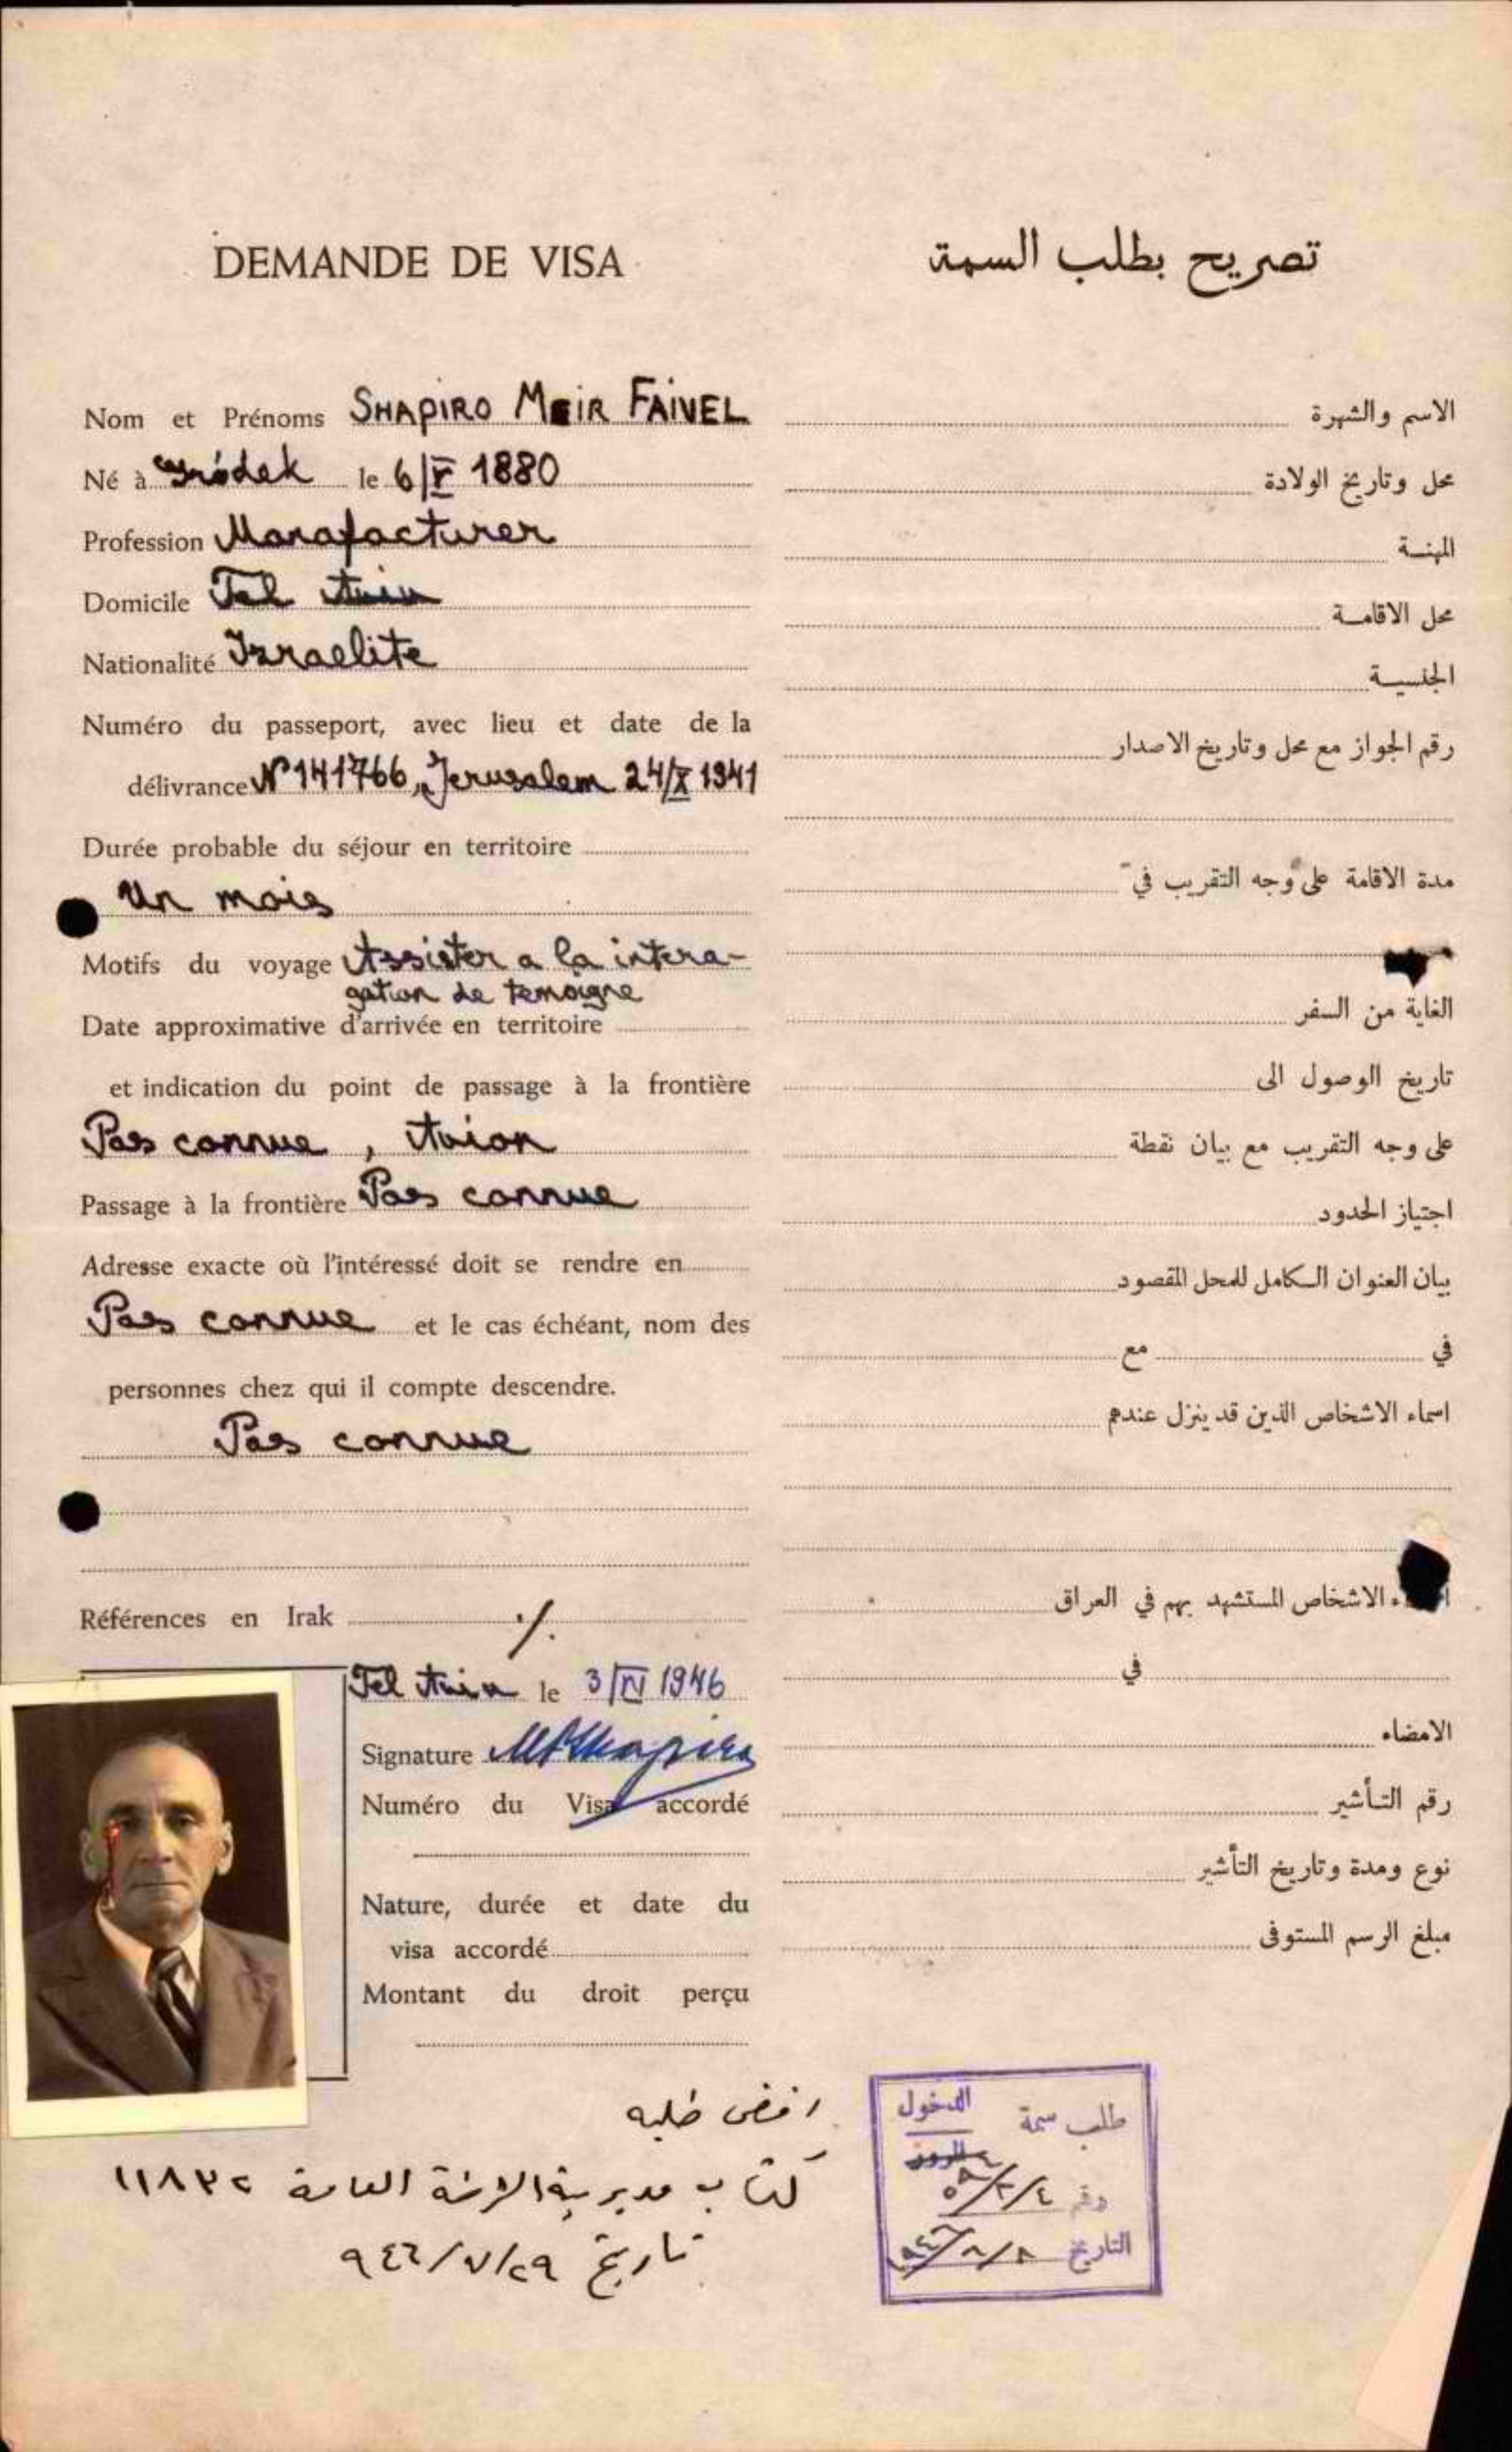 DEMANDE DE VISA
Nom et Prénoms SHAPIRO MEIR FAIVEL
Né à Gródek le 6/V 1880
Profession Manafacturer
Domicile Tel Aviv
Nationalité Israelite
Numéro du passeport, avec lieu et date de la
délivrance N° 141766, Jerusalem 24/X 1941
Durée probable du séjour en territoire
Un mois
Motifs du voyage Assister a la intera-
gation de temoigne
Date approximative d'arrivée en territoire
et indication du point de passage à la frontière
Pas connue, Avion
Passage à la frontière Pas connue
Adresse exacte où l'intéressé doit se rendre en
Pas connue et le cas échéant, nom des
personnes chez qui il compte descendre.
Pas connue
Références en Irak ./.
Tel Aviv le 3/IV 1946
Signature MFShapiro
Numéro du Visa accordé
Nature, durée et date du
visa accordé
Montant du droit perçu
تصريح بطلب السمة
الاسم والشهرة
محل وتاريخ الولادة
المهنة
محل الاقامة
الجنسية
رقم الجواز مع محل وتاريخ الاصدار
مدة الاقامة على وجه التقريب في
الغاية من السفر
تاريخ الوصول الى
على وجه التقريب مع بيان نقطة
اجتياز الحدود
بيان العنوان الكامل للمحل المقصود
في مع
اسماء الاشخاص الذين قد ينزل عندهم
الاشخاص المستشهد بهم في العراق
في
الامضاء
رقم التأشير
نوع ومدة وتاريخ التأشير
مبلغ الرسم المستوفى
طلبه
كتاب مديرية العامة ١١٨٣٢
تاريخ ٩٤٦/٧/٢٩
طلب سمة الدخول
المرور
رقم
التاريخ